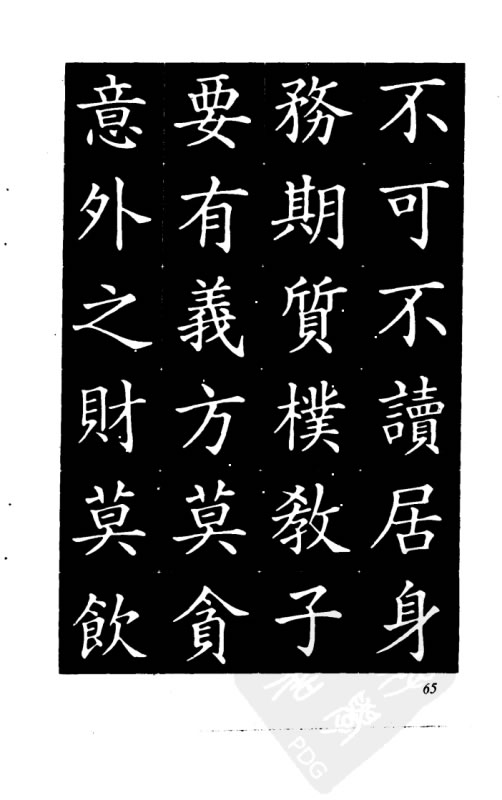 不可不讀居身
務期質樸教子
要有義方莫貪
意外之財莫飲
65
PDG